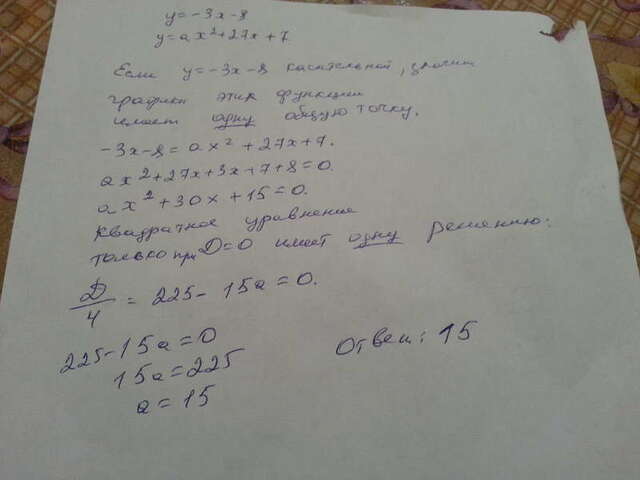 y=-3x-8
y=ax²+27x+7
Если y=-3x-8 касательной, значит
графики этих функции
имеют одну общую точку.
-3x-8=ax²+27x+7.
ax²+27x+3x+7+8=0.
ax²+30x+15=0.
Квадратное уравнение
только при D=0 имеет одну решению:
D/4 = 225-15a=0.
225-15a=0
15a=225
a=15
Ответ: 15